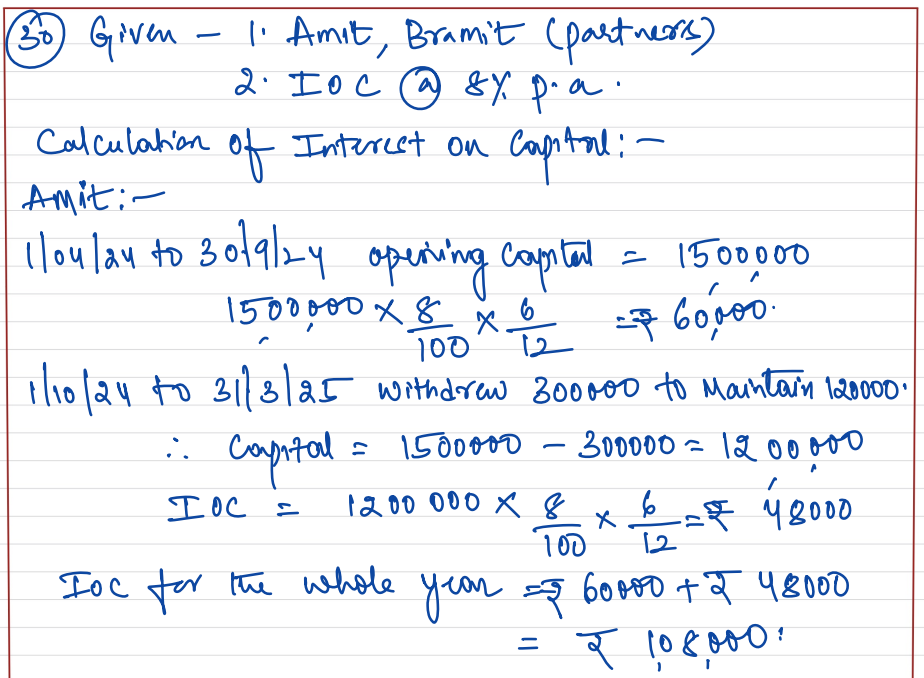 30 Given - 1. Amit, Bramit (partners)
2. IOC @ 8% p.a.
Calculation of Interest on Capital:-
Amit:-
1/04/24 to 30/9/24 opening capital = 1500000
1500000 × 8/100 × 6/12 = ₹ 60,000.
1/10/24 to 31/3/25 withdrew 300000 to Maintain 120000.
∴ Capital = 1500000 - 300000 = 1200000
IOC = 1200 000 × 8/100 × 6/12 = ₹ 48000
IOC for the whole year = ₹ 60000 + ₹ 48000
= ₹ 108,000.